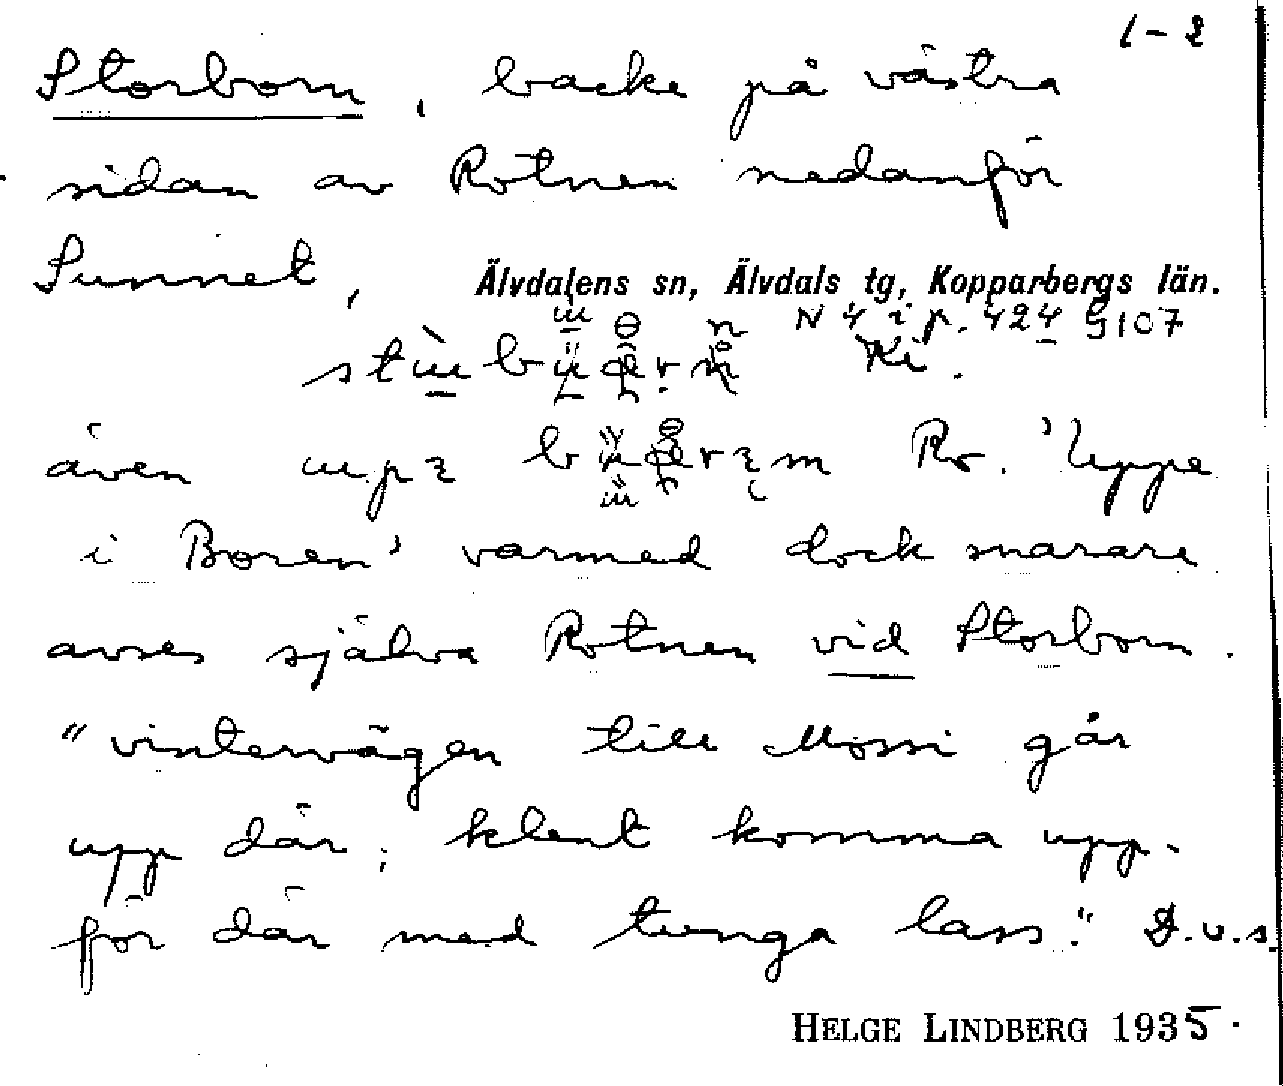 1-2
Storborn, backe på västra
sidan av Rotnen nedanför
Sunnet,
Älvdalens sn, Älvdals tg, Kopparbergs län.
N 4 i p. 424 G107
Ki.
även Ro. 'Uppe
i Boren' varmed dock snarare
avses själva Rotnen vid Storborn.
"vintervägen till Mossi går
upp där; klent komma upp-
för där med tunga lass." D.v.s.
HELGE LINDBERG 1935.